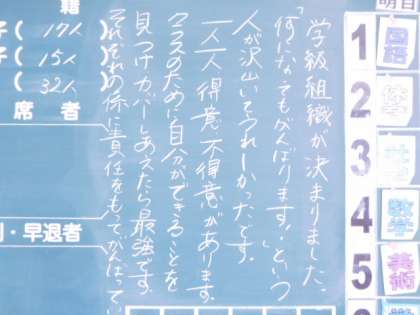 明日
1 国語
2
3 社会
4 数学
5 美術
学級組織が決まりました。
「何になってもがんばります!」という
人が沢山いてうれしかったです。
一人一人得意不得意があります。
クラスのために自分ができることを
見つけカバーしあえたら最強です。
それぞれの係に責任をもってがんばってい
籍
子(17人)
子(15人)
(32人)
席者
・早退者